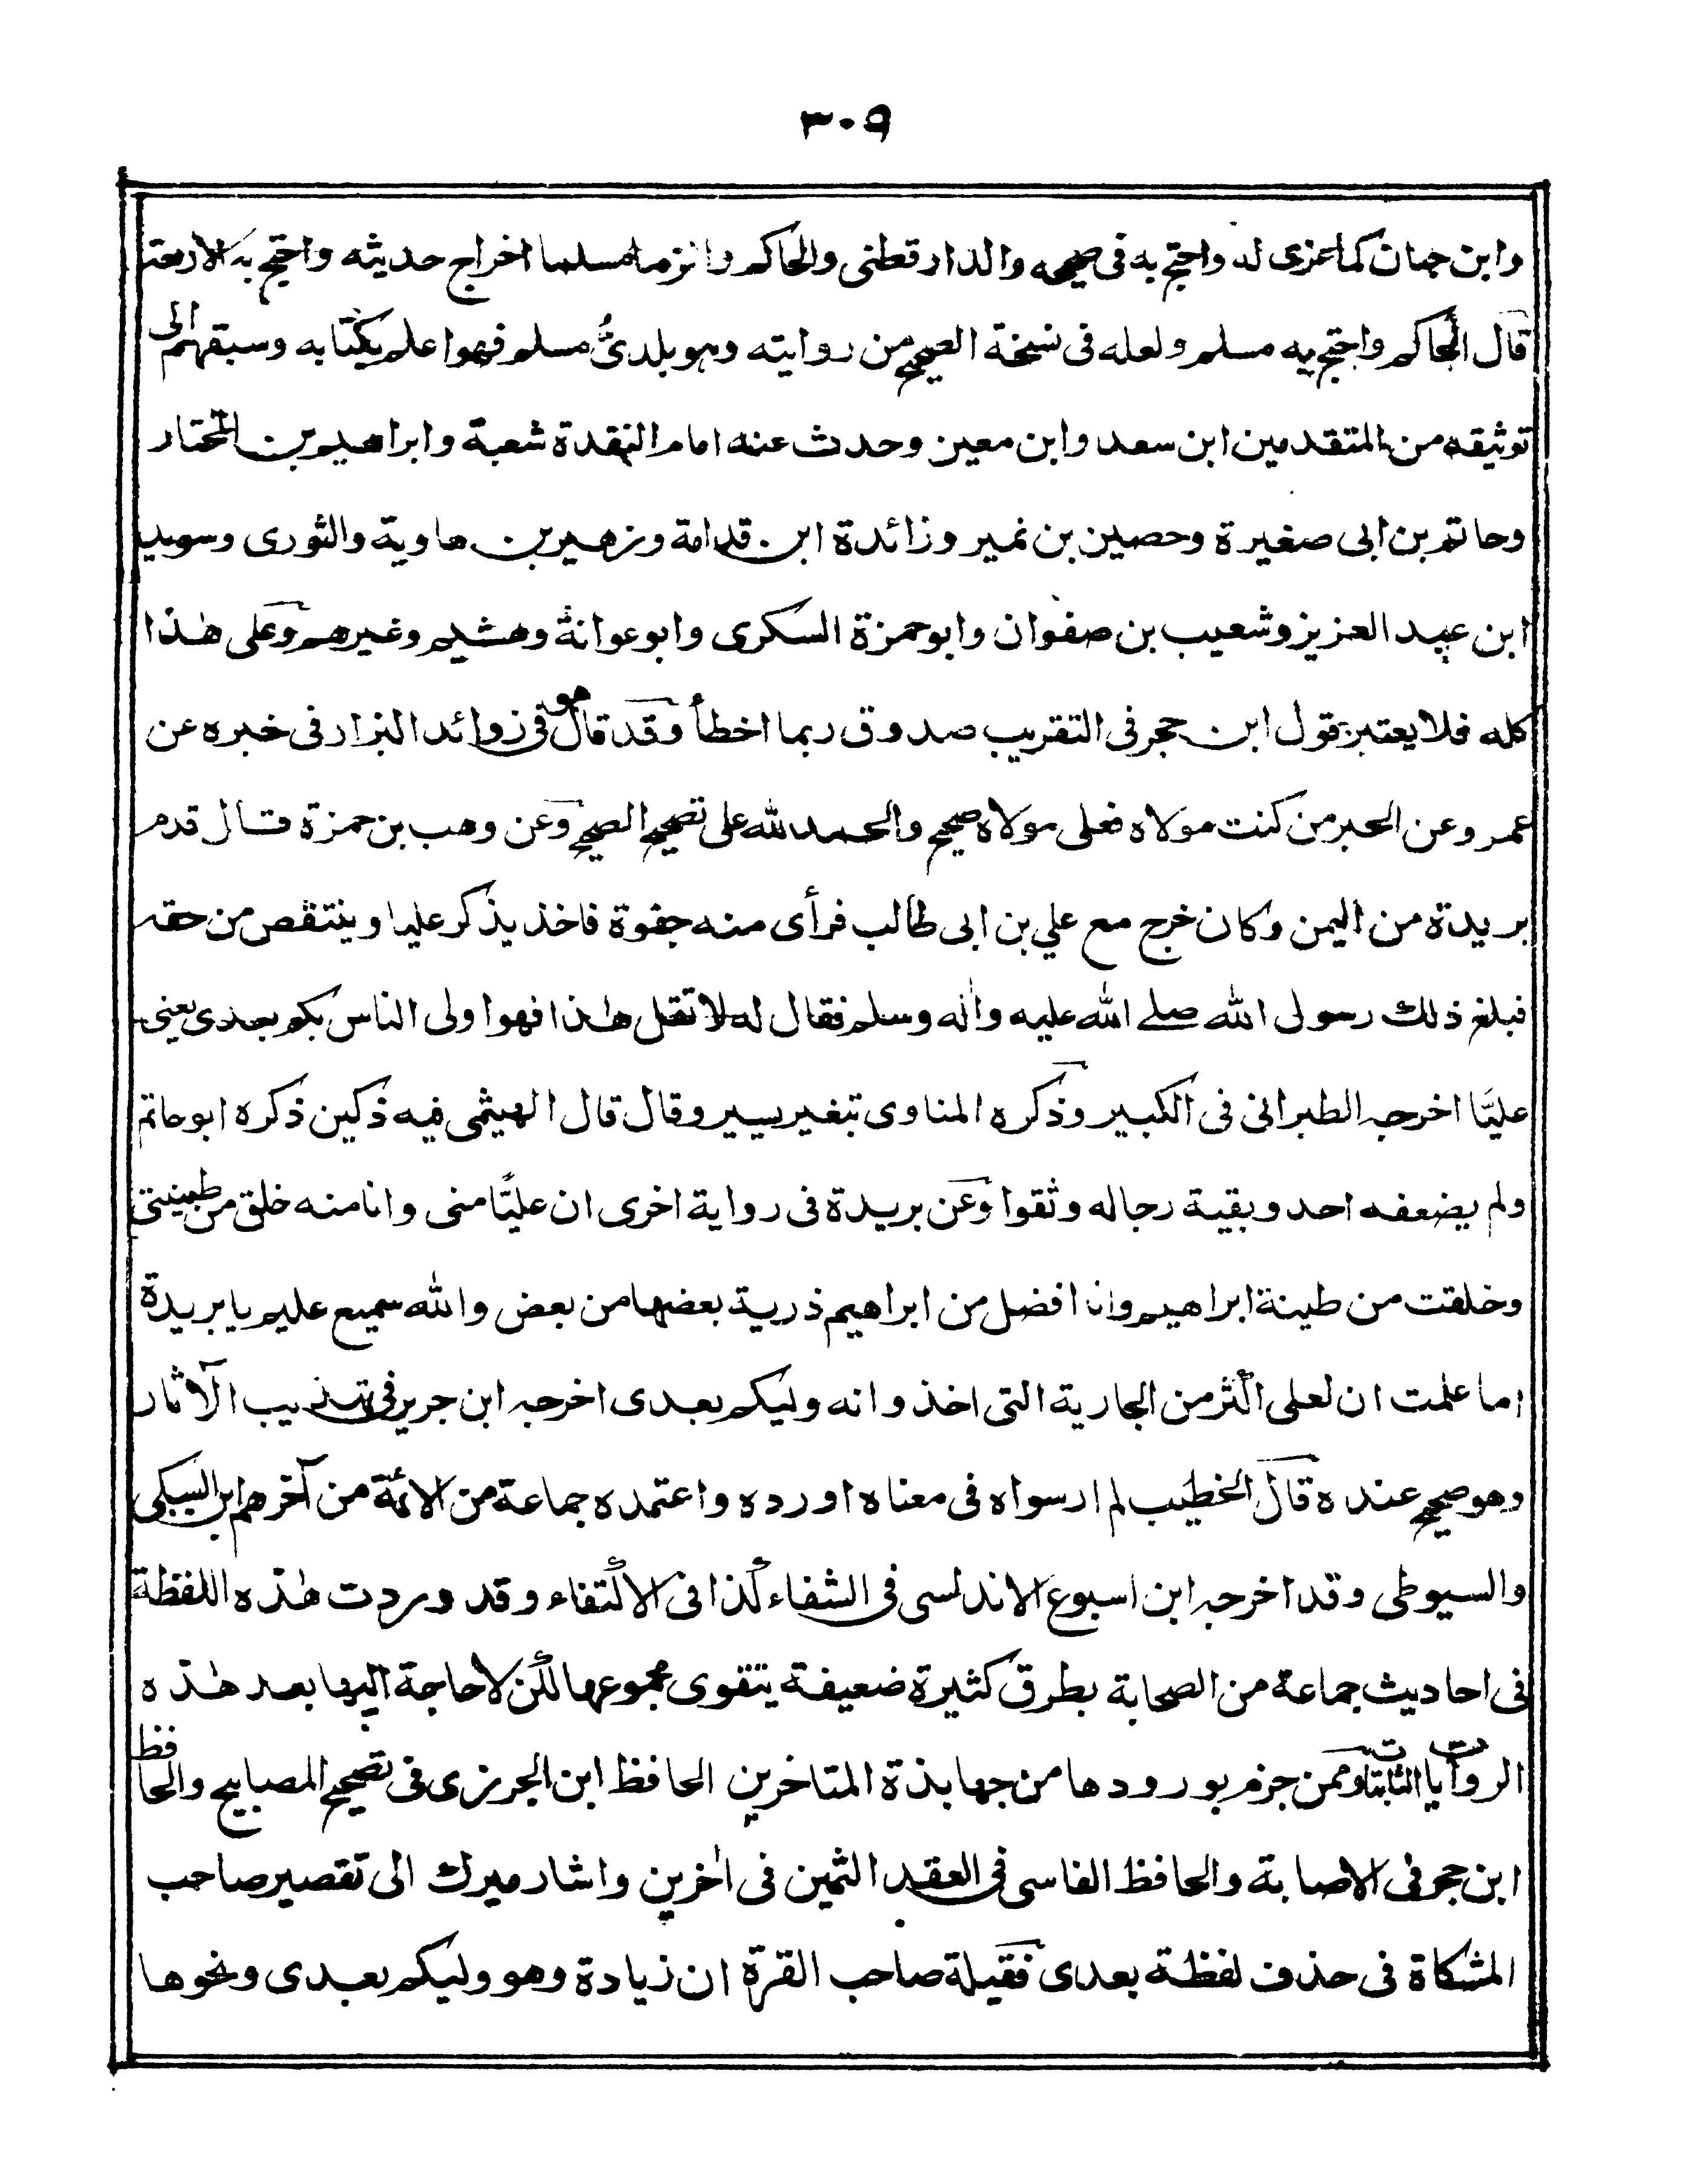 ٣٠٩
وابن حبان كما عزى له واحتج به فى صحيحه والدارقطنى والحاكم والزما مسلما اخراج حديثه واحتج به الاربعة
قال الحاكم واحتج به مسلم ولعله فى نسخة الصحيح من روايته وهو بلدىُّ مسلم فهوا علم بكتابه وسبقهم الى
توثيقه من المتقدمين ابن سعد وابن معين وحدث عنه امام النقدة شعبة وابراهيم بن المختار
وحاتم بن ابى صغيرة وحصين بن نمير وزائدة ابن قدامة وزهير بن معاوية والثورى وسويد
ابن عبد العزيز وشعيب بن صفوان وابو حمزة السكرى وابو عوانة وهشيم وغيرهم وعلى هٰذا
كله فلا يعتبر بقول ابن حجر فى التقريب صدوق ربما اخطأ وقد قال هو فى زوائد البزار فى خبره عن
عمر وعن الحبر من كنت مولاه فعلى مولاه صحيح والحمد لله على تصحيح الصحيح وعن وهب بن حمزة قال قدم
بريدة من اليمن وكان خرج مع علي بن ابى طالب فرأى منه جفوة فاخذ يذكر عليا وينتقص من حقه
فبلغ ذلك رسول الله صلے الله عليه واٰله وسلم فقال له لا تقل هٰذا فهوا ولى الناس بكم بعدى يعنى
عليًّا اخرجه الطبرانى فى الكبير وذكره المناوى بتغير يسير وقال قال الهيثمى فيه ذكين ذكره ابو حاتم
ولم يضعفه احد وبقية رجاله وثقوا وعن بريدة فى رواية اخرى ان عليًّا منى وانا منه خلق من طينتى
وخلقت من طينة ابراهيم وانا افضل من ابراهيم ذرية بعضها من بعض والله سميع عليم يا بريدة
اما علمت ان لعلى اكثر من الجارية التى اخذ وانه وليكم بعدى اخرجه ابن جرير فى تهذيب الآثار
وهو صحيح عنده قال الخطيب لم ار سواه فى معناه اورده واعتمده جماعة من الائمة من آخرهم ابن السبكى
والسيوطى وقد اخرجه ابن اسبوع الاندلسى فى الشفاء كذا فى الاكتفاء وقد وردت هٰذه اللفظة
فى احاديث جماعة من الصحابة بطرق كثيرة ضعيفة يتقوى مجموعها لكن لا حاجة اليها بعد هٰذه
الروايات الثابتات وممن جزم بورودها من جهابذة المتاخرين الحافظ ابن الجزرى فى تصحيح المصابيح والحافظ
ابن حجر فى الاصابة والحافظ الفاسى فى العقد الثمين فى اٰخرين واشار ميرك الى تقصير صاحب
المشكاة فى حذف لفظة بعدى فقيلة صاحب القرة ان زيادة وهو وليكم بعدى ونحوها